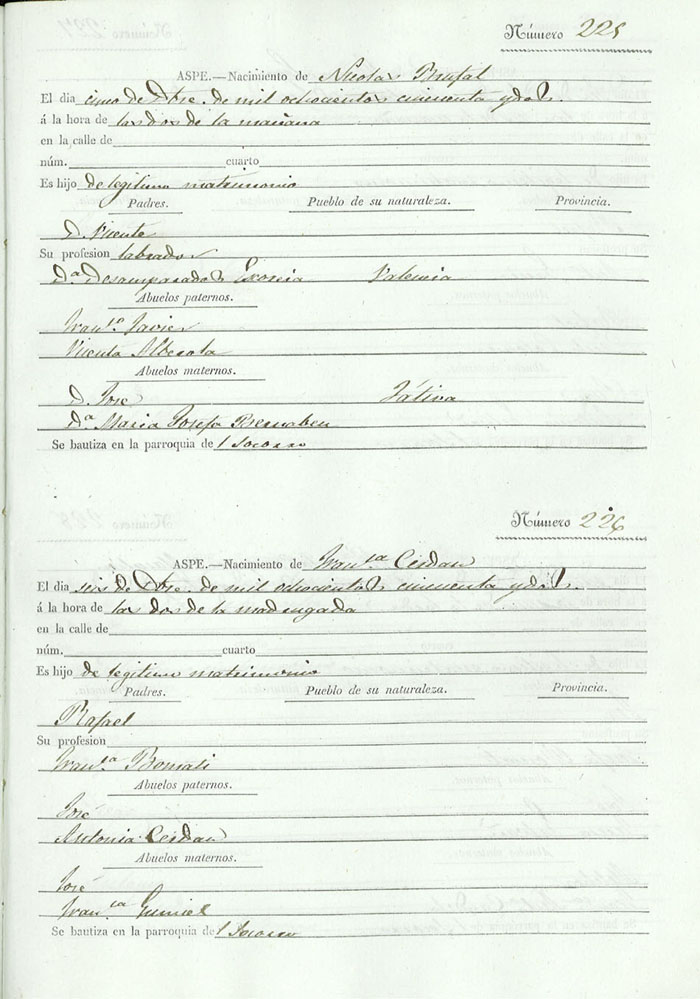 Número 225
ASPE.—Nacimiento de Nicolas Brufal
El dia cinco de Dbre. de mil ochocientos cincuenta y dos.
á la hora de las dos de la mañana
en la calle de
núm. cuarto
Es hijo de legitimo matrimonio
Padres. Pueblo de su naturaleza. Provincia.
D. Vicente
Su profesion labrador
Dª Desamparados Valencia
Abuelos paternos.
Franco. Javier
Vicenta Alberola
Abuelos maternos.
D. José Játiva
Dª Maria Josefa Bernabeu
Se bautiza en la parroquia del Socorro
Número 226
ASPE.—Nacimiento de Franca Cerdan
El dia seis de Dbre. de mil ochocientos cincuenta y dos.
á la hora de las dos de la madrugada
en la calle de
núm. cuarto
Es hijo de legitimo matrimonio
Padres. Pueblo de su naturaleza. Provincia.
Rafael
Su profesion
Franca
Abuelos paternos.
José
Antonia Cerdan
Abuelos maternos.
José
Franca Gumiel
Se bautiza en la parroquia del Socorro